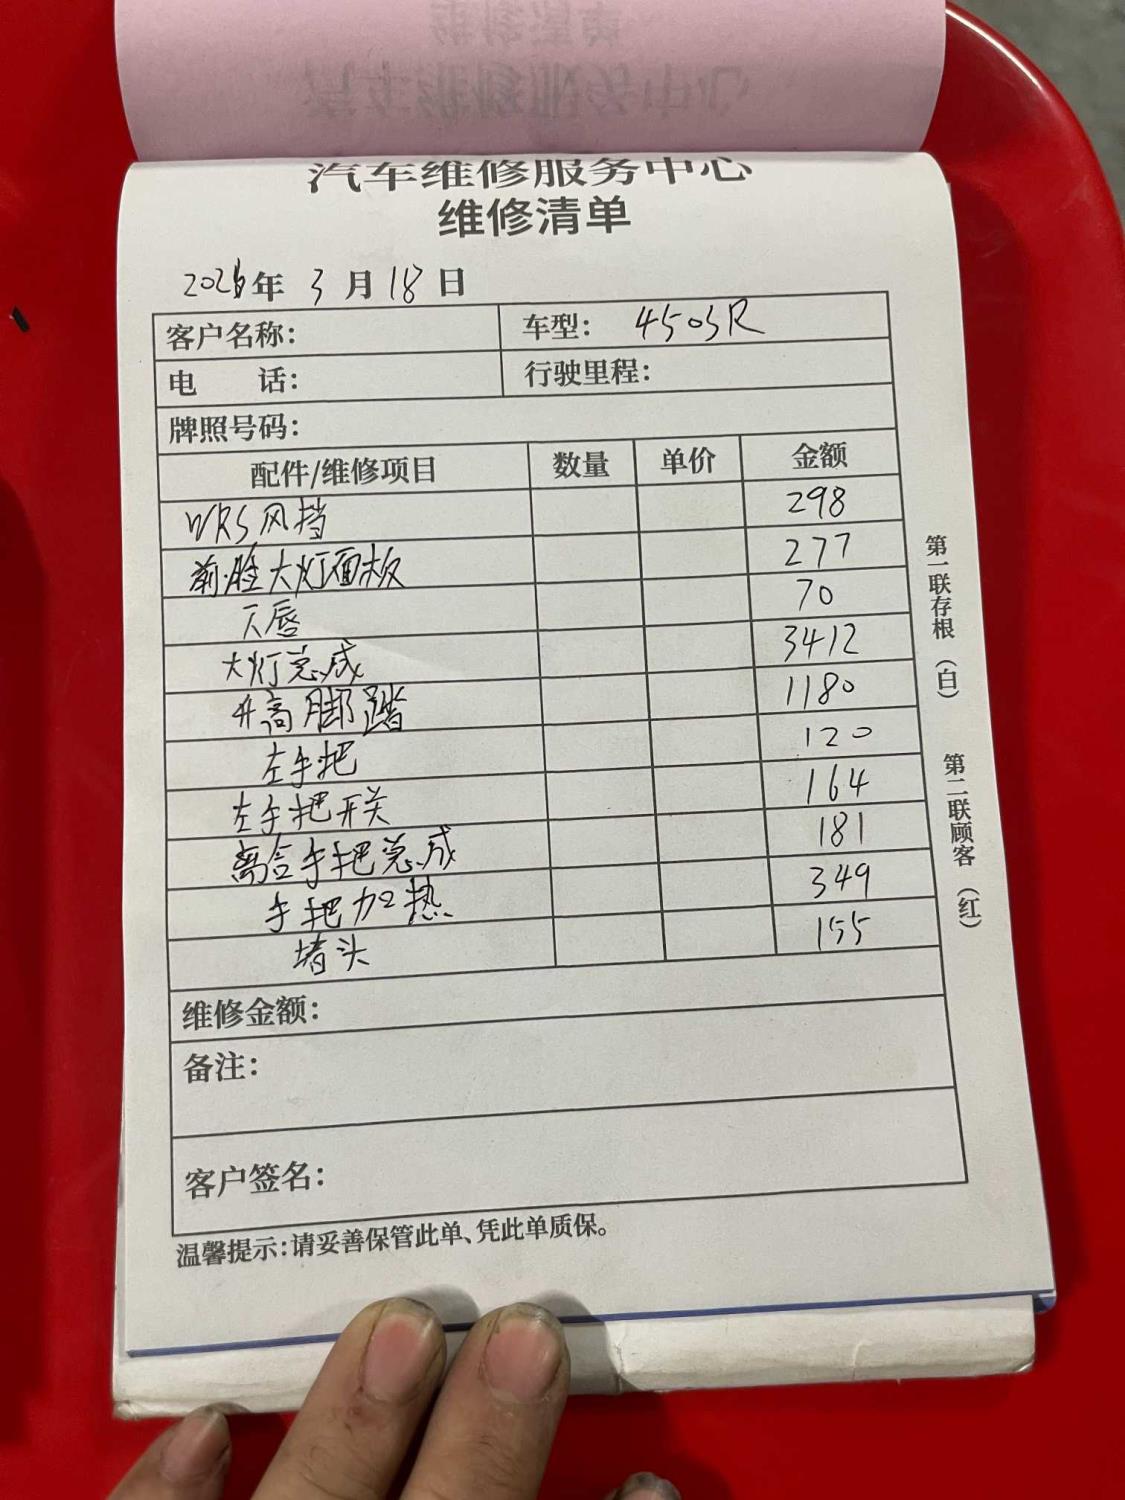 汽车维修服务中心
维修清单
2026年 3月18日
客户名称: 车型: 450SR
电 话: 行驶里程:
牌照号码:
配件/维修项目 数量 单价 金额
WRS风挡 298
前脸大灯面板 277
下唇 70
大灯总成 3412
升高脚踏 1180
左手把 120
左手把开关 164
离合手把总成 181
手把加热 349
堵头 155
维修金额:
备注:
客户签名:
温馨提示:请妥善保管此单、凭此单质保。
第一联存根（白） 第二联顾客（红）